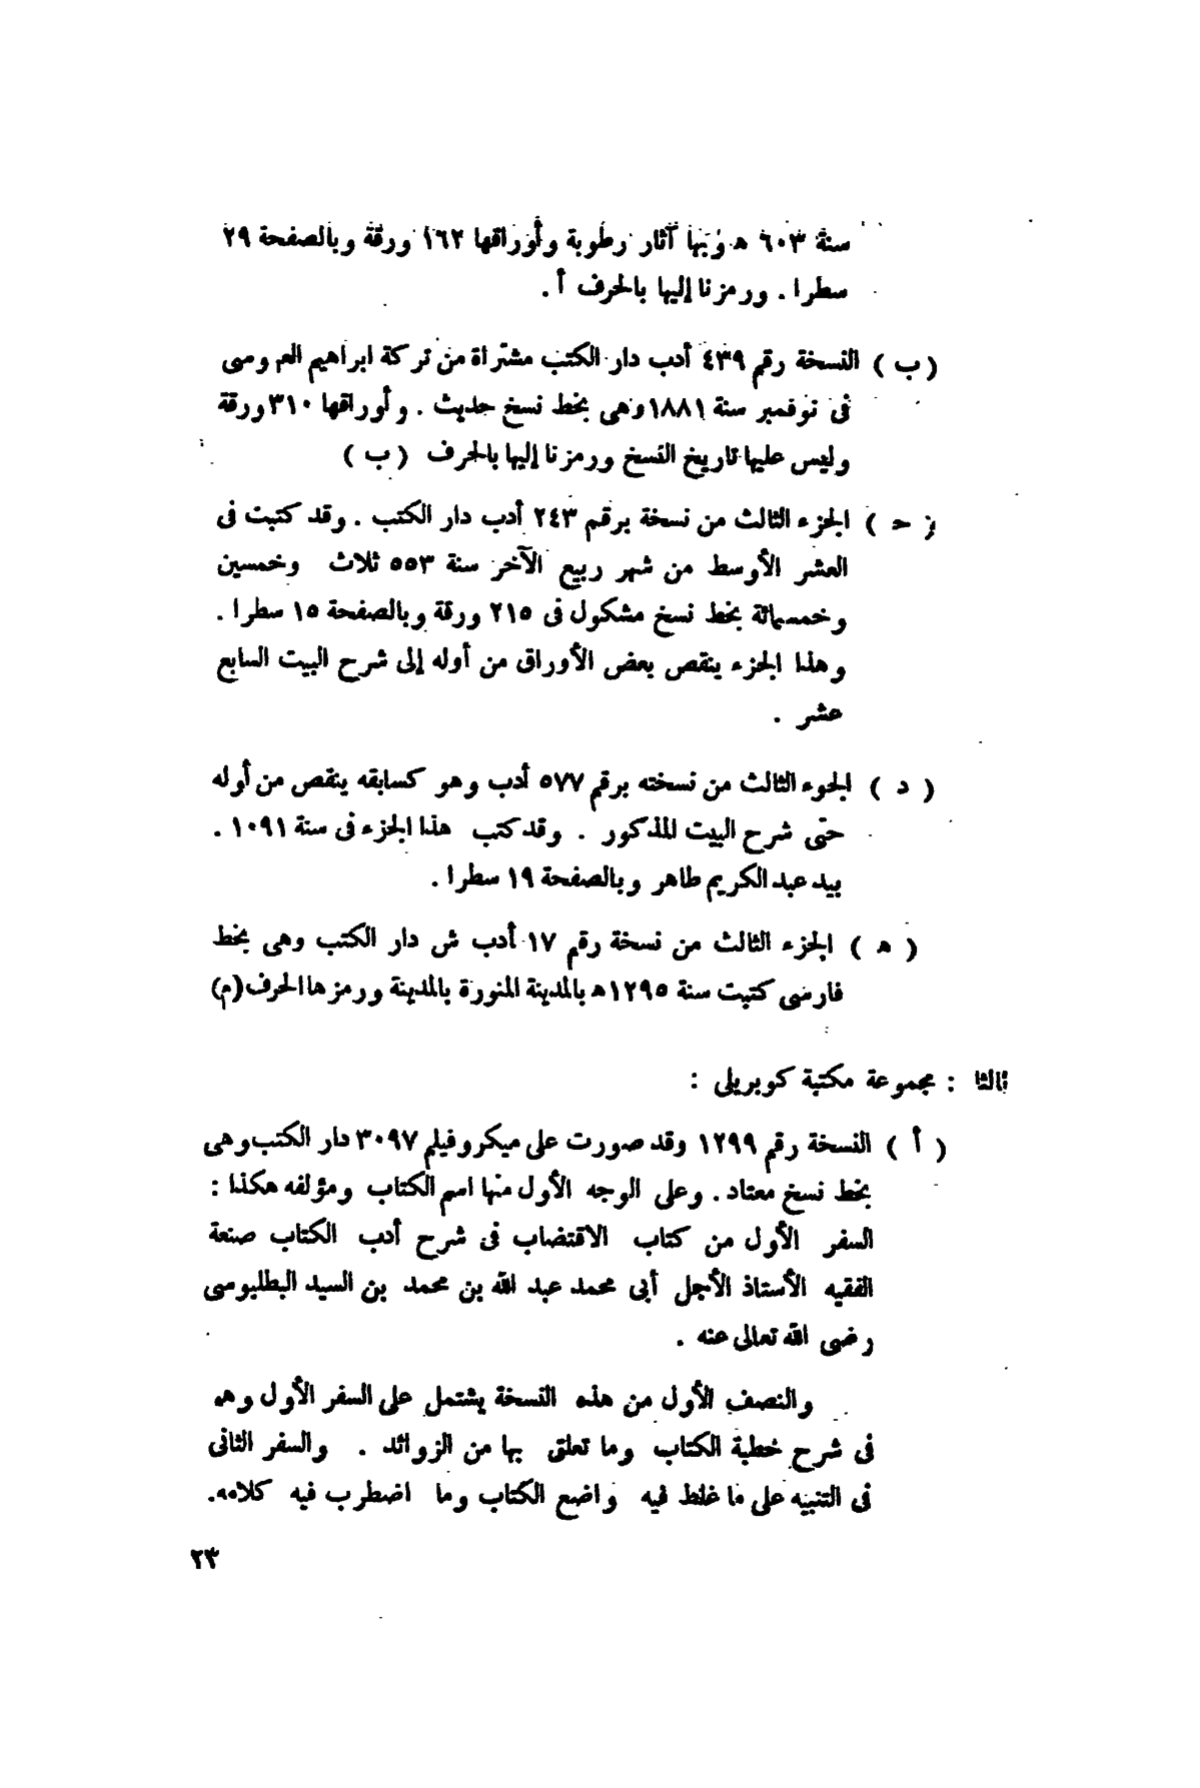 سنة ٦٠٣ هـ وبها آثار رطوبة وأوراقها ١٦٢ ورقة وبالصفحة ٢٩
سطرا . ورمزنا إليها بالحرف أ .
( ب ) النسخة رقم ٤٣٩ أدب دار الكتب مشتراة من تركة ابراهيم العروسى
فى نوفمبر سنة ١٨٨١ وهى بخط نسخ حديث . وأوراقها ٣١٠ ورقة
وليس عليها تاريخ النسخ ورمزنا إليها بالحرف ( ب )
( حـ ) الجزء الثالث من نسخة برقم ٢٤٣ أدب دار الكتب . وقد كتبت فى
العشر الأوسط من شهر ربيع الآخر سنة ٥٥٣ ثلاث وخمسين
وخمسمائة بخط نسخ مشكول فى ٢١٥ ورقة وبالصفحة ١٥ سطرا .
وهذا الجزء ينقص بعض الأوراق من أوله إلى شرح البيت السابع
عشر .
( د ) الجوء الثالث من نسخته برقم ٥٧٧ أدب وهو كسابقه ينقص من أوله
حتى شرح البيت المذكور . وقد كتب هذا الجزء فى سنة ١٠٩١ .
بيد عبد الكريم طاهر وبالصفحة ١٩ سطرا .
( هـ ) الجزء الثالث من نسخة رقم ١٧ أدب ش دار الكتب وهى بخط
فارسى كتبت سنة ١٢٩٥هـ بالمدينة المنورة بالمدينة ورمزها الحرف (م)
ثالثا : مجموعة مكتبة كوبريلى :
( أ ) النسخة رقم ١٢٩٩ وقد صورت على ميكروفيلم ٣٠٩٧ دار الكتب وهى
بخط نسخ معتاد . وعلى الوجه الأول منها اسم الكتاب ومؤلفه هكذا :
السفر الأول من كتاب الاقتضاب فى شرح أدب الكتاب صنعة
الفقيه الأستاذ الأجل أبى محمد عبد الله بن محمد بن السيد البطليوسى
رضى الله تعالى عنه .
والنصف الأول من هذه النسخة يشتمل على السفر الأول وهو
فى شرح خطبة الكتاب وما تعلق بها من الزوائد . والسفر الثانى
فى التنبيه على ما غلط فيه واضع الكتاب وما اضطرب فيه كلامه.
٢٣